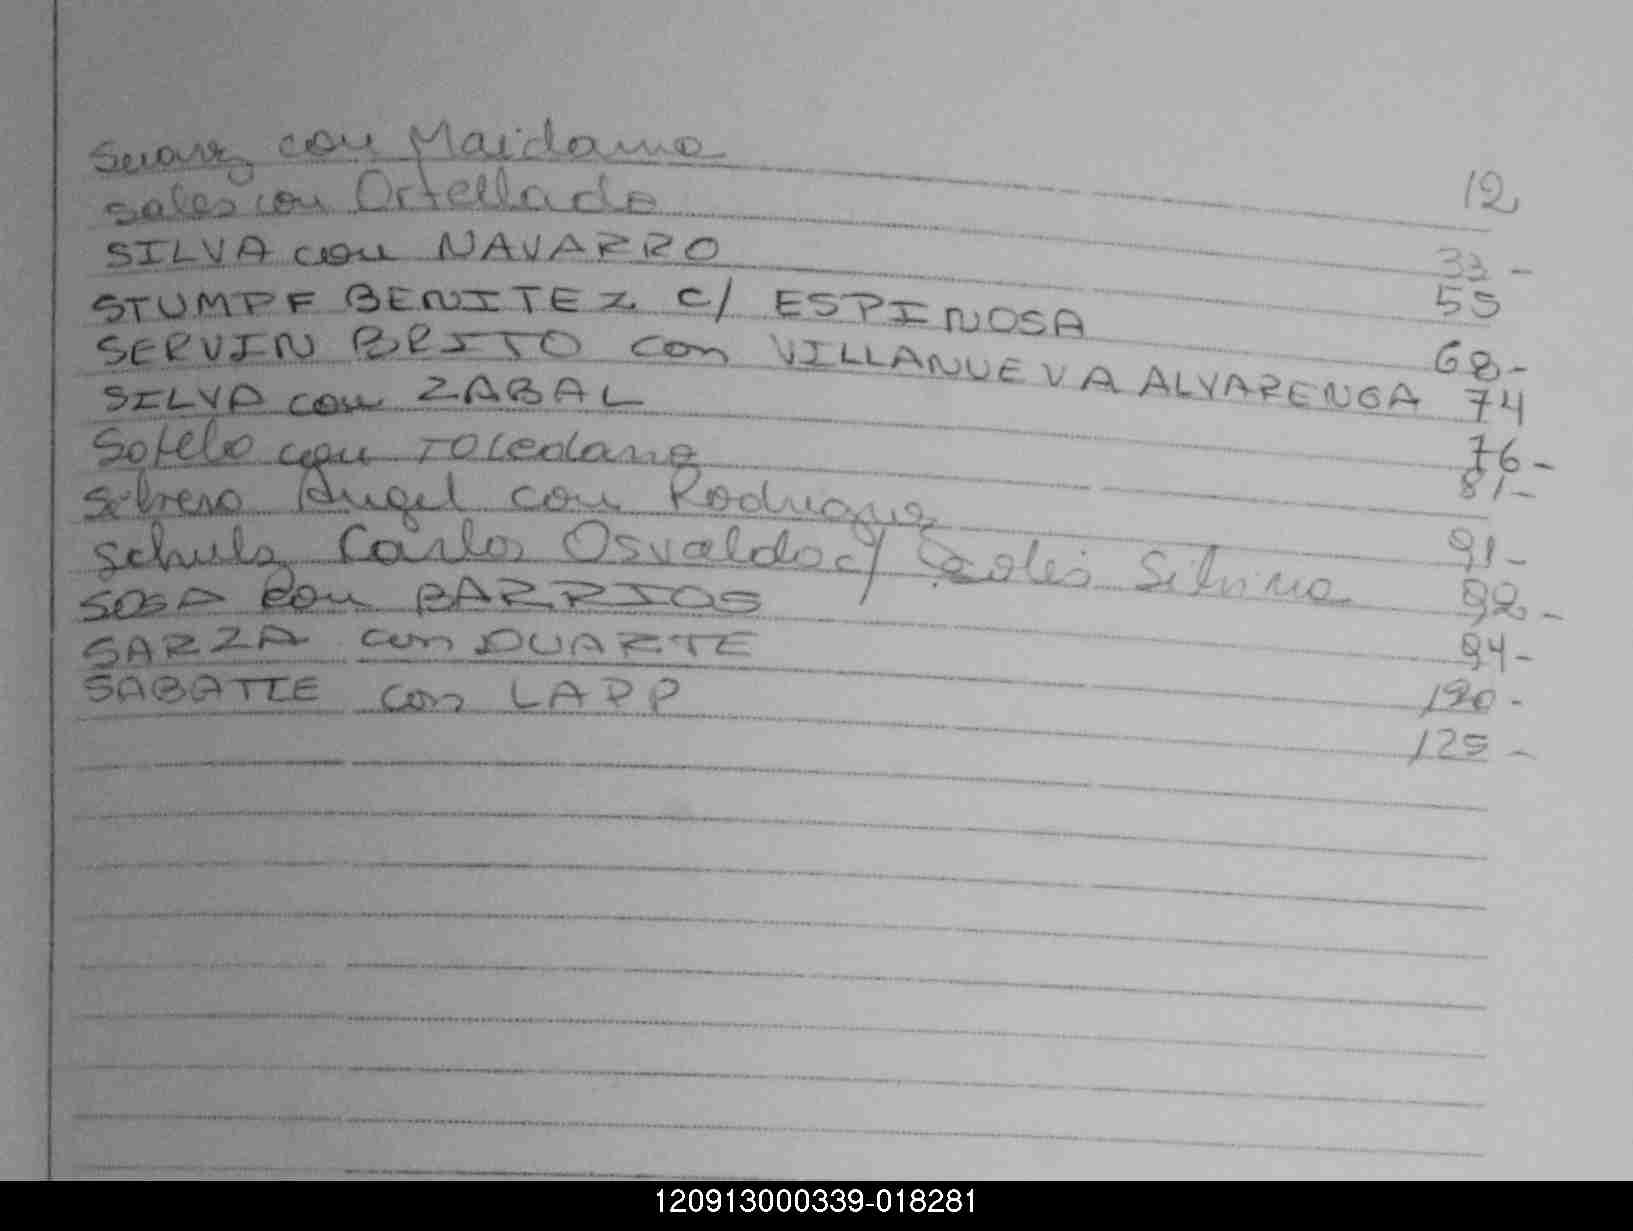 Suarez con Maidana 12
Sales con Ortellado 33-
SILVA con NAVARRO 55
STUMPF BENITEZ c/ ESPINOSA 68-
SERVIN BRITO con VILLANUEVA ALVARENGA 74
SILVA con ZABAL 76-
Sotelo con TOLedano 81-
Angel con Rodriguez 91-
Schulz Carlos Osvaldo c/ Silvina 92-
SOSA con BARRIOS 94-
SARZA con DUARTE 120-
SABATTE con LAPP 125-
120913000339-018281